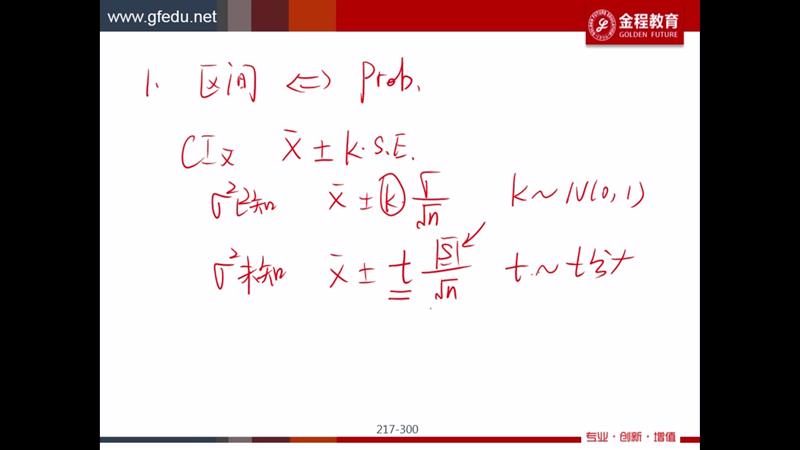 www.gfedu.net
金程教育
GOLDEN FUTURE
1. 区间 <=> Prob.
CI x̄ x̄ ± k·S.E.
σ²已知 x̄ ± k σ/√n k ~ N(0, 1)
σ²未知 x̄ ± t S/√n t ~ t分
217-300
专业·创新·增值